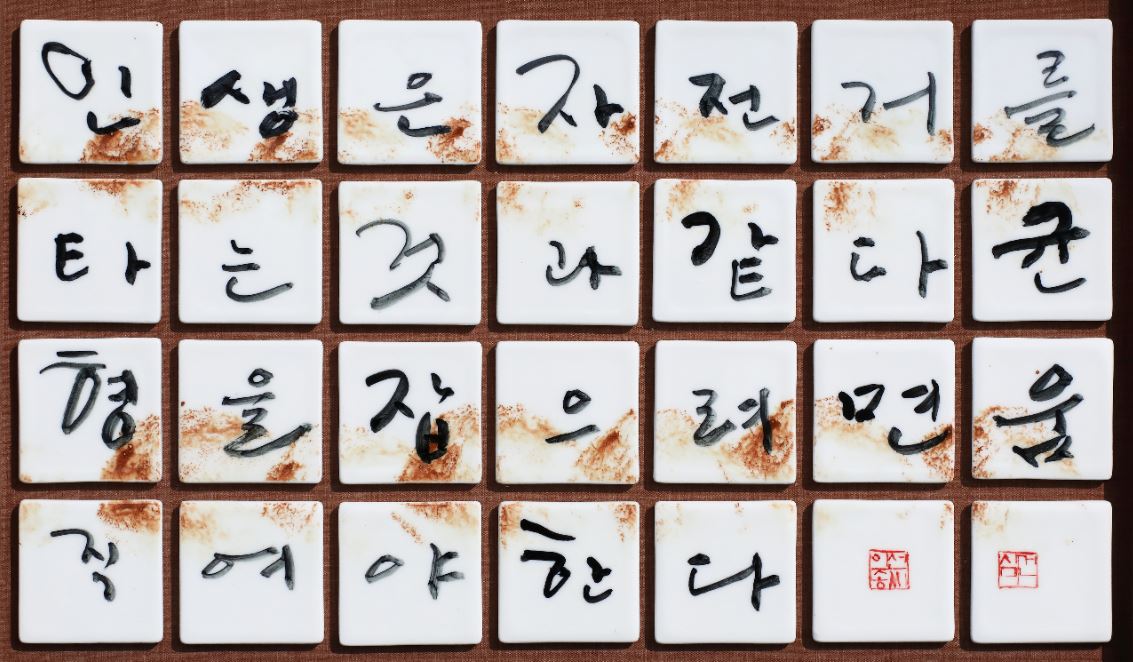 인생은자전거를
타는것과같다균
형을잡으려면움
직여야한다